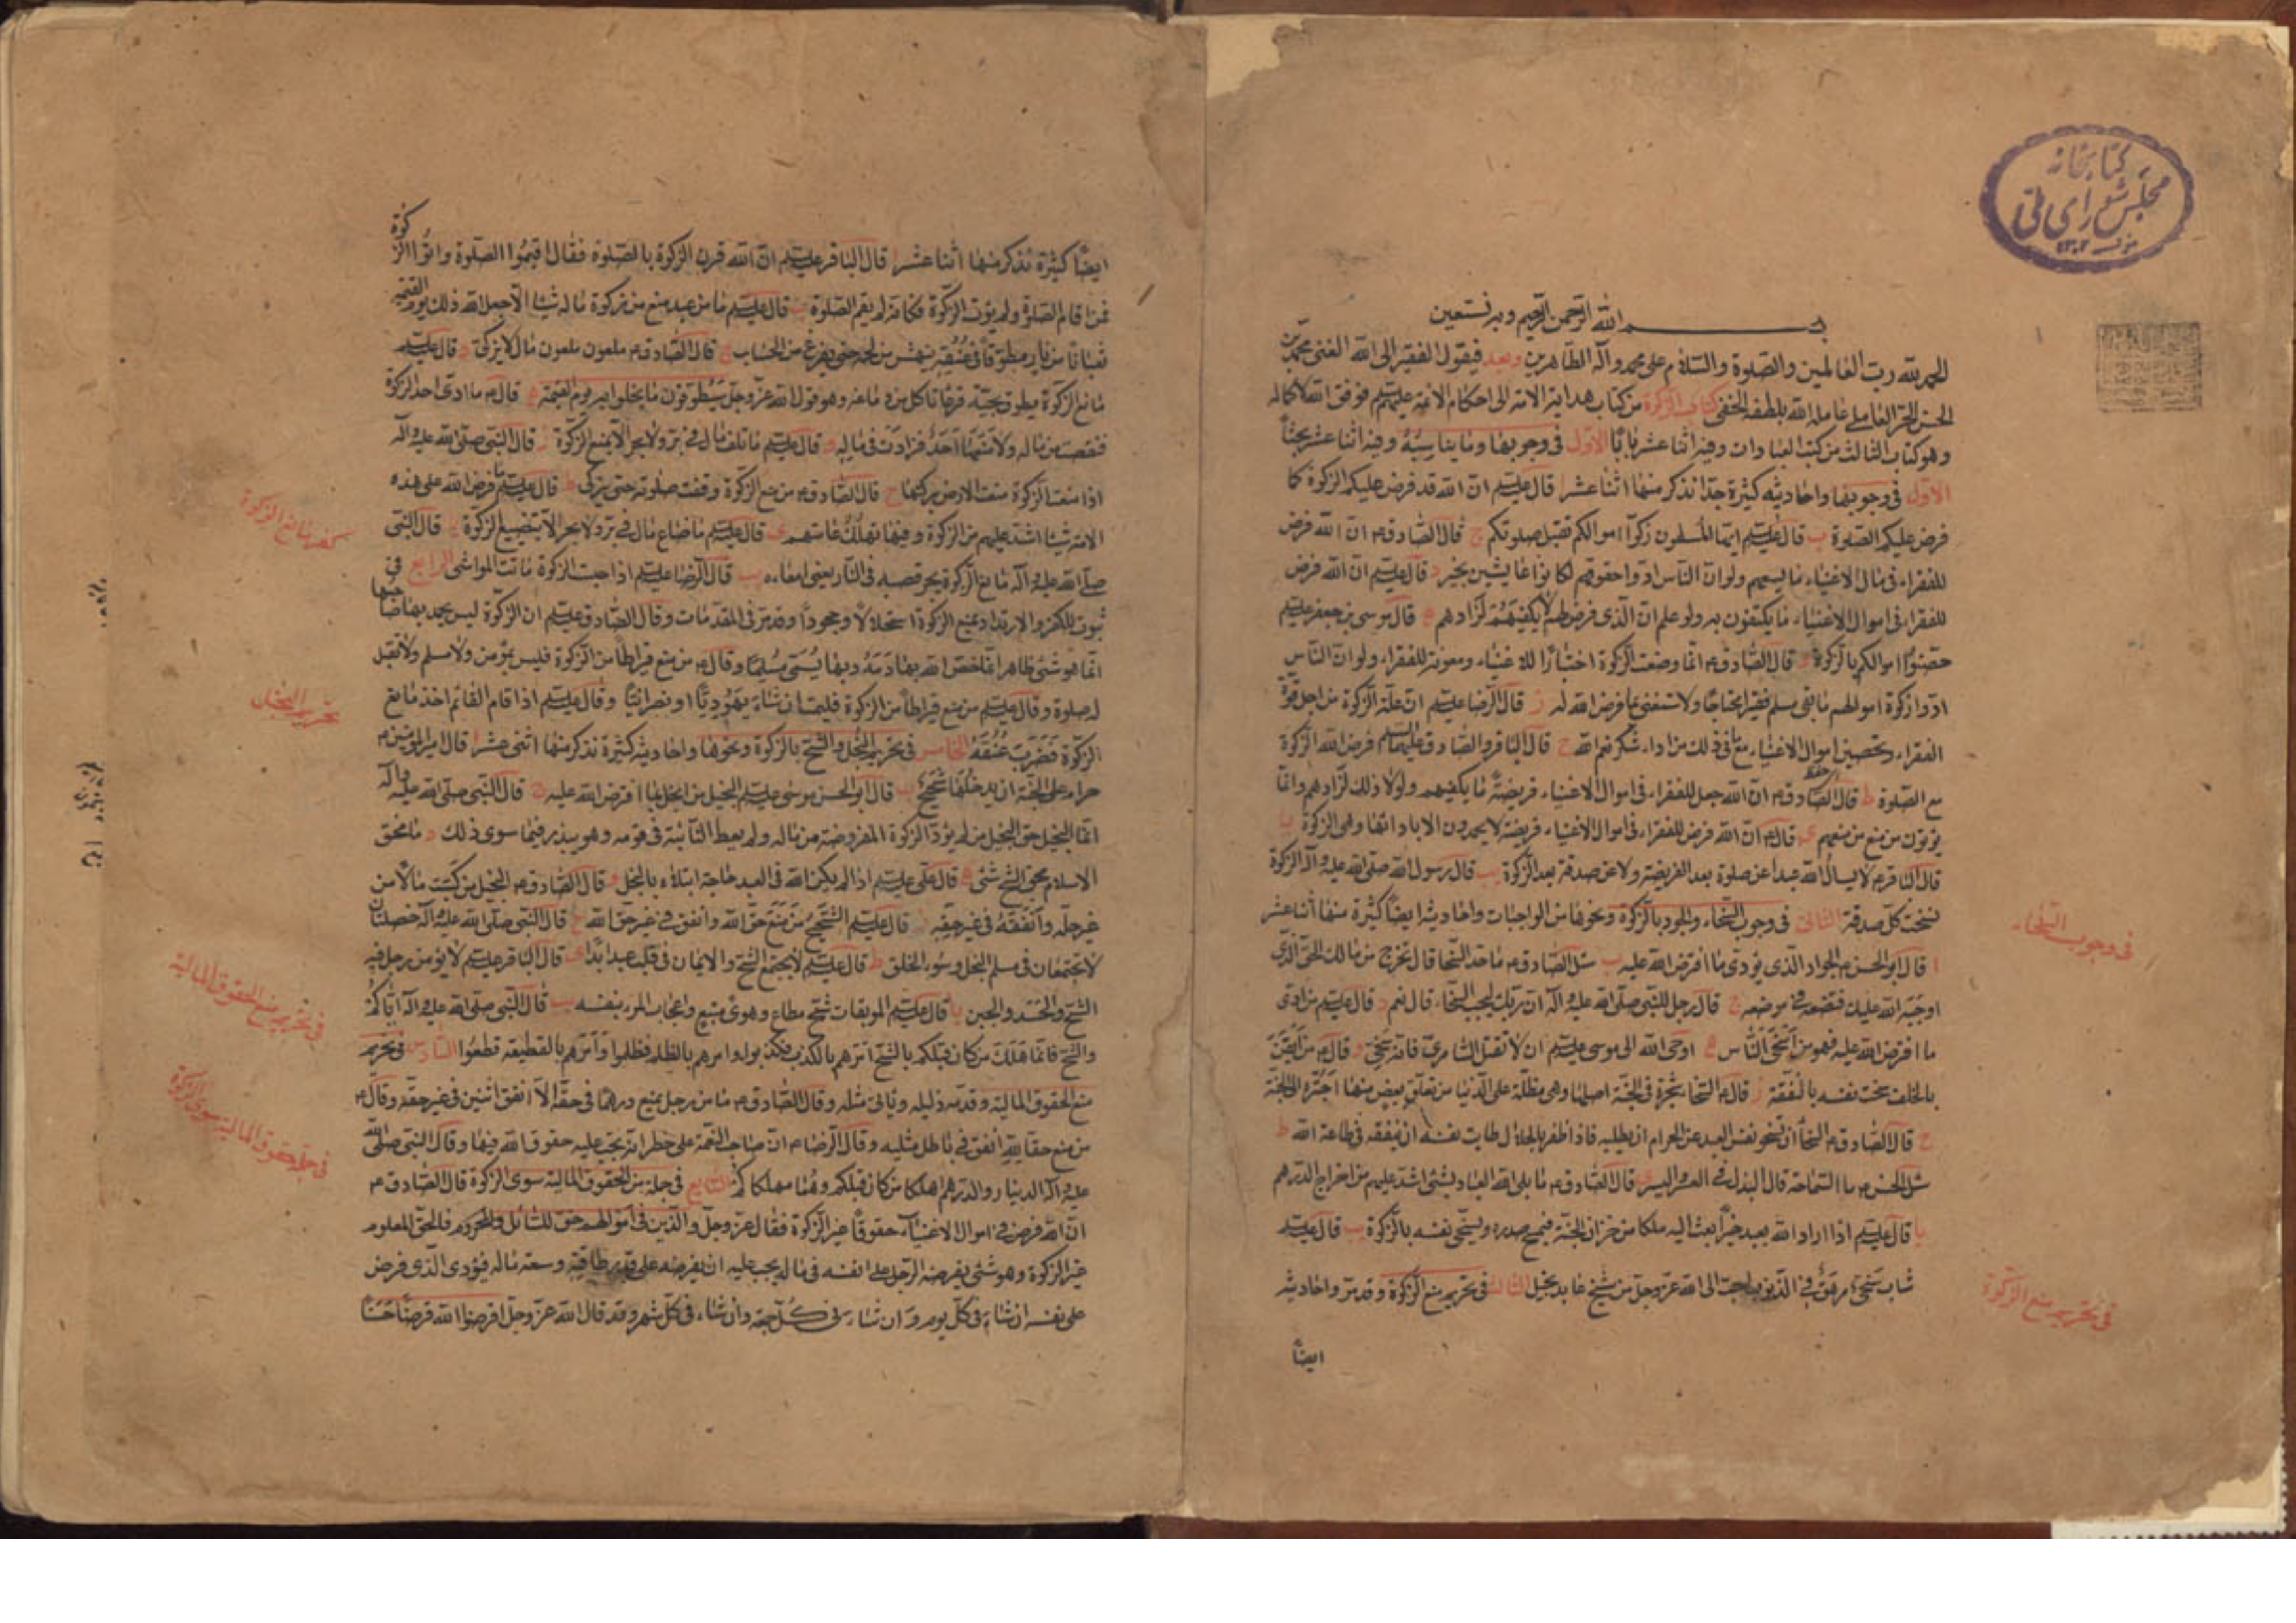 كتابخانه
مجلس شورای ملی
بسم الله الرحمن الرحيم وبه نستعين
الحمد لله رب العالمين والصلوة والسلام على محمد وآله الطاهرين وبعد فيقول الفقير الى الله الغنى محمد بن
الحسن الحر العاملى عامله الله بلطفه الخفى كتاب الزكوة من كتاب هداية الامة الى احكام الائمة عليهم فوفق الله لاكماله
وهو كتاب الثالث من كتب العبادات وفيه اثنا عشر بابا الاول فى وجوبها وما يناسبه وفيه اثنا عشر بحثاً
الاول فى وجوبها واحاديثه كثيرة جدا نذكر منها اثنا عشر ا قال عليسلم ان الله قد فرض عليكم الزكوة كما
فرض عليكم الصلوة ب قال عليسلم ايها المسلمون زكوا اموالكم تقبل صلوتكم ج قال الصادق ع ان الله فرض
للفقراء فى مال الاغنياء ما يسعهم ولو ان الناس ادوا حقوقهم لكانوا عايشين بخير د قال عليسلم ان الله فرض
للفقراء فى اموال الاغنياء ما يكتفون به ولو علم ان الذى فرض لهم لا يكفيهم لزادهم ه قال موسى بن جعفر عليسلم
حصنوا اموالكم بالزكوة و قال الصادق ع انما وضعت الزكوة اختبارا للاغنياء ومعونة للفقراء ولو ان الناس
ادوا زكوة اموالهم ما بقى مسلم فقيرا محتاجا ولاستغنى بما فرض الله له ز قال الرضا عليسلم ان علة الزكوة من اجل قوة
الفقراء وتحصين اموال الاغنياء مع ما فى ذلك من اداء شكر نعم الله ح قال الباقر والصادق عليهما السلم فرض الله الزكوة
مع الصلوة ط قال الصادق ع ان الله جعل للفقراء فى اموال الاغنياء فريضة ما يكفيهم ولولا ذلك لزادهم وانما
يؤتون من منع من منعهم ى قال ع ان الله فرض للفقراء فى اموال الاغنياء فريضة لا يحمدون الا بادائها وهى الزكوة يا
قال الباقر ع لا يسال الله عبدا عن صلوة بعد الفريضة ولا عن صدقة بعد الزكوة يب قال رسول الله صلى الله عليه وآله الزكوة
نسخت كل صدقة الثانى فى وجوب السخاء والجود بالزكوة ونحوها من الواجبات واحاديثه ايضا كثيرة منها اثنا عشر
ا قال ابو الحسن ع الجواد الذى يؤدى ما افترض الله عليه ب سئل الصادق ع ما حد السخا قال تخرج من مالك الحق الذى
اوجبه الله عليك فتضعه فى موضعه ج قال رجل للنبى صلى الله عليه وآله ان ربك يحب السخاء قال نعم د قال عليسلم من ادى
ما افترض الله عليه فهو من اسخى الناس ه اوحى الله الى موسى عليسلم ان لا تقتل السامرى فانه سخى و قال ع من ايقن
بالخلف سخت نفسه بالنفقة ز قال ع السخا شجرة فى الجنة اصلها وهى مظلة على الدنيا من تعلق بغصن منها اجتره الى الجنة
ح قال الصادق ع السخا ان تسخو نفس العبد عن الحرام ان يطلبه فاذا ظفر بالحلال طابت نفسه ان ينفقه فى طاعة الله ط
سئل الحسن ع ما السماحة قال البذل فى العسر واليسر ى قال الصادق ع ما بلى الله العباد بشئ اشد عليهم من اخراج الدرهم
يا قال عليسلم اذا اراد الله بعبد خيرا بعث اليه ملكا من خزان الجنة فيمسح صدره ويسخى نفسه بالزكوة يب قال عليسلم
شاب سخى مرهق فى الذنوب احب الى الله عز وجل من شيخ عابد بخيل الثالث فى تحريم منع الزكوة وقد مر واحاديثه
ايضاً
فى وجوب السخاء
فى تحريم منع الزكوة
ايضا كثيرة نذكر منها اثنا عشر ا قال الباقر عليسلم ان الله قرن الزكوة بالصلوة فقال اقيموا الصلوة واتوا الزكوة
فمن اقام الصلوة ولم يؤت الزكوة فكانه لم يقم الصلوة ب قال عليسلم ما من عبد منع من زكوة ماله شيئا الا جعل الله ذلك يوم القيمة
ثعبانا من نار مطوقا فى عنقه ينهش من لحمه حتى يفرغ من الحساب ج قال الصادق ع ملعون ملعون مال لا يزكى د قال عليسلم
مانع الزكوة يطوق بحية قرعا تاكل من دماغه وهو قول الله عز وجل سيطوقون ما بخلوا به يوم القيمة ه قال ع ما ادى احد الزكوة
فنقصت من ماله ولا منعها احد فزادت فى ماله و قال عليسلم ما تلف مال فى بر ولا بحر الا بمنع الزكوة ز قال النبى صلى الله عليه وآله
اذا منعت الزكوة منعت الارض بركتها ح قال الصادق ع من منع الزكوة وقفت صلوته حتى يزكى ط قال عليسلم ما فرض الله على هذه
الامة شيئا اشد عليهم من الزكوة وفيها تهلك عامتهم ى قال عليسلم ما ضاع مال فى بر ولا بحر الا بتضييع الزكوة يا قال النبى
صلى الله عليه وآله مانع الزكوة يجر قصبه فى النار يعنى امعاءه يب قال الرضا عليسلم اذا حبست الزكوة ماتت المواشى الرابع فى
ثبوت الكفر والارتداد بمنع الزكوة استحلالا وجحودا وقد مر فى المقدمات وقال الصادق عليسلم ان الزكوة ليس يحمد بها صاحبها
انما هو شئ ظاهر انما حقن الله بها دمه وبها يسمى مسلما وقال ع من منع قيراطا من الزكوة فليس بمؤمن ولا مسلم ولا تقبل
له صلوة وقال عليسلم من منع قيراطا من الزكوة فليمت ان شاء يهوديا او نصرانيا وقال عليسلم اذا قام القائم اخذ مانع
الزكوة فضربت عنقه الخامس فى تحريم البخل والشح بالزكوة ونحوها واحاديثه كثيرة نذكر منها اثنى عشر ا قال امير المؤمنين ع
حرام على الجنة ان يدخلها شحيح ب قال ابو الحسن موسى عليسلم البخيل من بخل بما افترض الله عليه ج قال النبى صلى الله عليه وآله
انما البخيل حق البخيل من لم يؤد الزكوة المفروضة من ماله ولم يعط النائبة فى قومه وهو يبذر فيما سوى ذلك د ما محق
الاسلام محق الشح شئ ه قال على عليسلم اذا لم يكن لله فى العبد حاجة ابتلاه بالبخل و قال الصادق ع البخيل من كسب مالا من
غير حله وانفقه فى غير حقه ز قال عليسلم الشحيح من منع حق الله وانفق فى غير حق الله ح قال النبى صلى الله عليه وآله خصلتان
لا تجتمعان فى مسلم البخل وسوء الخلق ط قال عليسلم لا يجتمع الشح والايمان فى قلب عبد ابدا ى قال الباقر عليسلم لا يؤمن رجل فيه
الشح والحسد والجبن يا قال عليسلم الموبقات شح مطاع وهوى متبع واعجاب المرء بنفسه يب قال النبى صلى الله عليه وآله اياكم
والشح فانما هلك من كان قبلكم بالشح امرهم بالكذب فكذبوا وامرهم بالظلم فظلموا وامرهم بالقطيعة فقطعوا السادس فى تحريم
منع الحقوق المالية وقد مر دليله وياتى مثله وقال الصادق ع ما من رجل منع درهما فى حقه الا انفق اثنين فى غير حقه وقال ع
من منع حقا لله انفق فى باطل مثليه وقال الرضا ع ان صاحب النعمة على خطر انه يجب عليه حقوق الله فيها وقال النبى صلى الله
عليه وآله الدينار والدرهم اهلكا من كان قبلكم وهما مهلكاكم السابع فى جملة من الحقوق المالية سوى الزكوة قال الصادق ع
ان الله فرض فى اموال الاغنياء حقوقا غير الزكوة فقال عز وجل والذين فى اموالهم حق للسائل والمحروم فالحق المعلوم
غير الزكوة وهو شئ يفرضه الرجل على نفسه فى ماله يجب عليه ان يفرضه على قدر طاقته وسعة ماله فيؤدى الذى فرض
على نفسه ان شاء فى كل يوم وان شاء فى كل جمعة وان شاء فى كل شهر وقد قال الله عز وجل اقرضوا الله قرضا حسنا
كفر مانع الزكوة
تحريم البخل
فى تحريم منع الحقوق المالية
فى جملة حقوق المالية سوى الزكوة